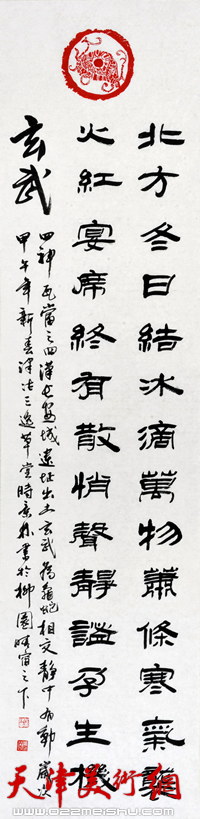 北方冬日結冰滴萬物蕭條寒氣襲
火紅宴席終有散悄聲靜謐孕生機
玄武
四神瓦當之四漢長安城遺址出土玄武為龜蛇相交靜中有動歲次
甲午年新春津沽三逸草堂時景林書於柳園晴窗之下
天津美術網
www.022meishu.com